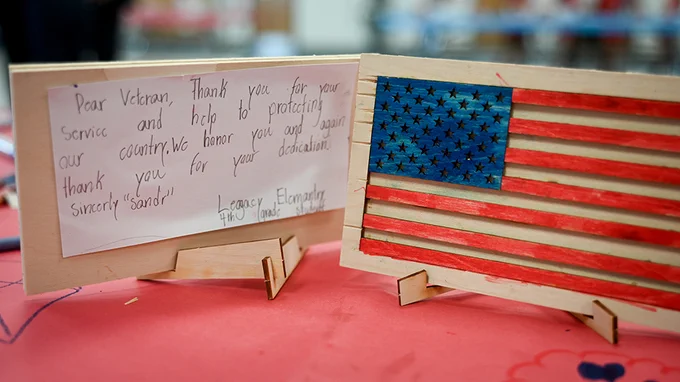 Dear Veteran, Thank you for your
Service and help to protecting
our country. We honor you and again
thank you for your dedication.
Sincerly "sandr"
Legacy Elemantry
4th grade student